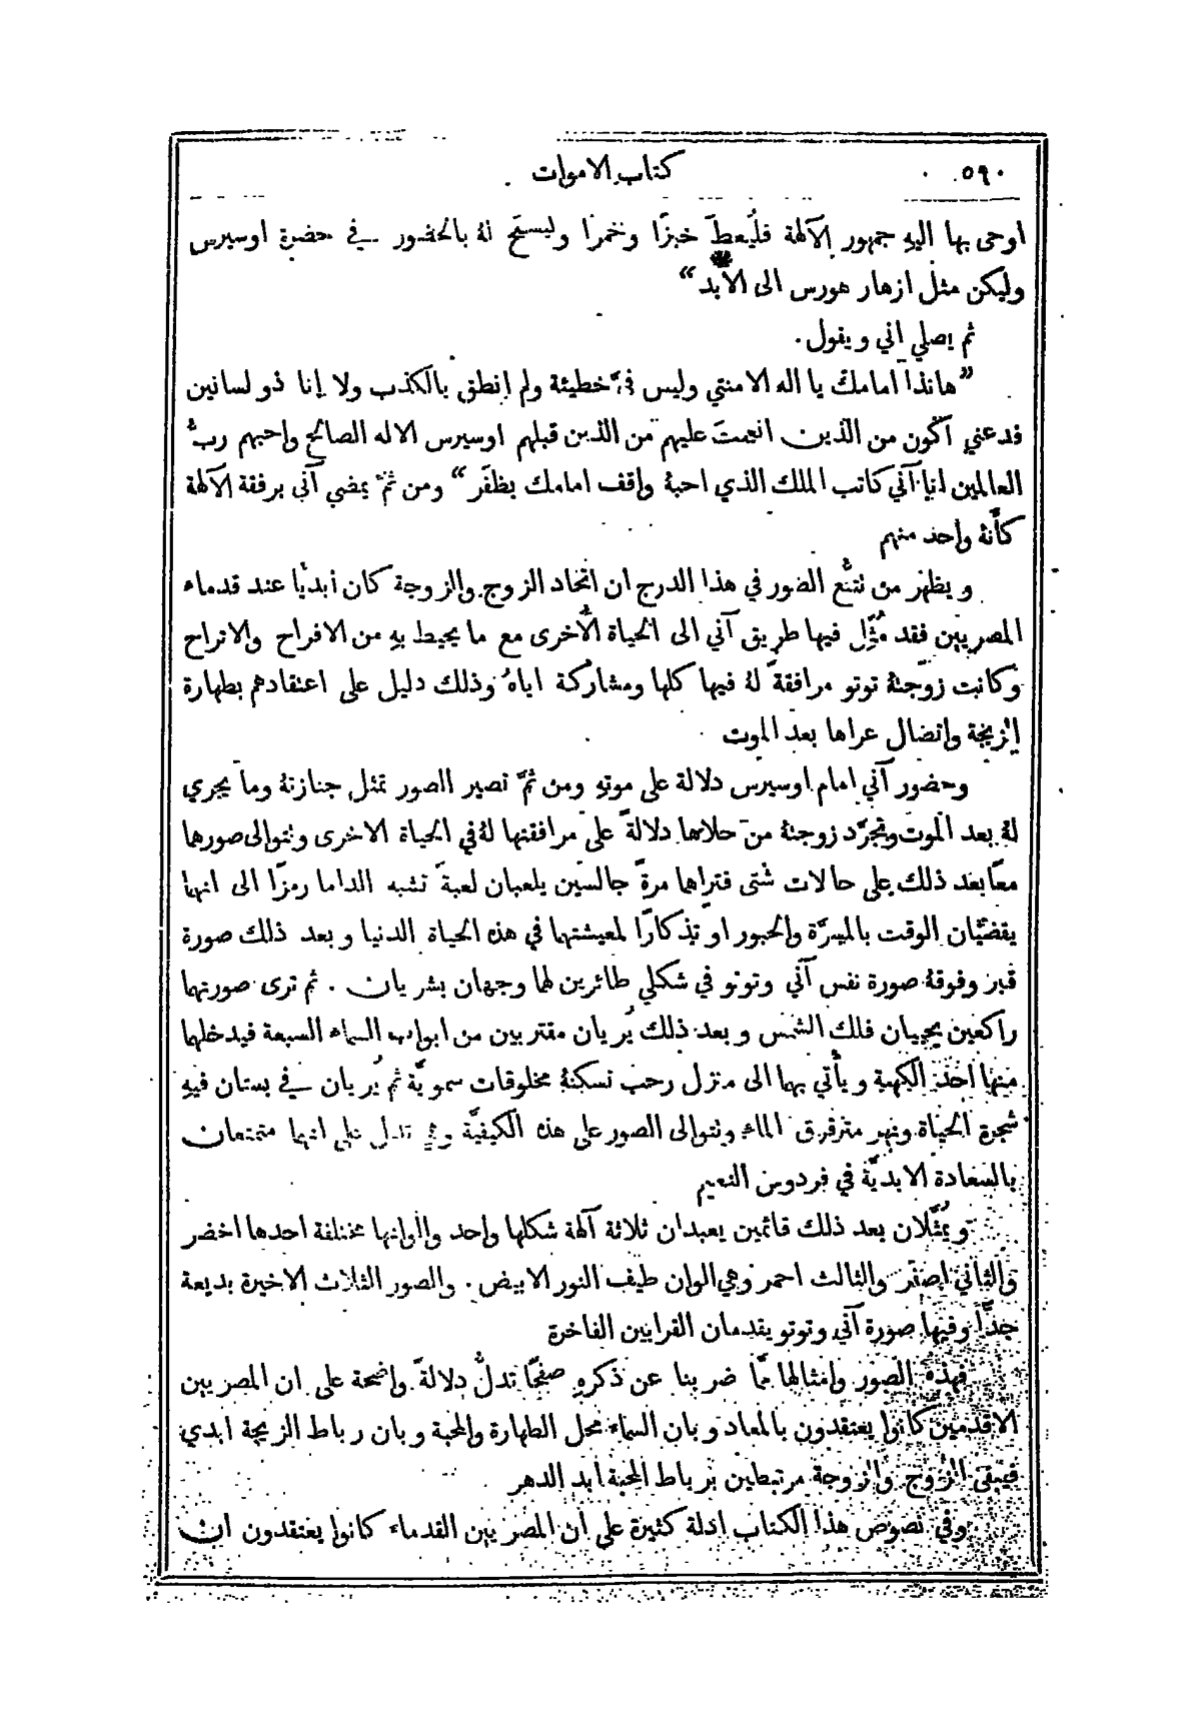 ٥٩٠ كتاب الاموات
اوحى بها اليهِ جمهور الآلهة فليُعطَ خبزًا وخمرًا وليسمَح لهُ بالحضور في حضرة اوسيرس
وليكن مثل ازهار هورس الى الأبد“
ثم يصلي اني ويقول.
”هانذا امامك يا اله الامنتي وليس فيَّ خطيئة ولم انطق بالكذب ولا انا ذو لسانين
فدعني اكون من الذين انعمتَ عليهم من الذين قبلهم اوسيرس الاله الصالح واحبهم ربُّ
العالمين انا آني كاتب الملك الذي احبهُ واقف امامك بظفَر“ ومن ثمَّ يمضي آني برفقة الآلهة
كأنَّهُ واحد منهم
ويظهر من تتبُّع الصور في هذا الدرج ان اتحاد الزوج والزوجة كان أبديًا عند قدماء
المصريين فقد مُثّل فيها طريق آني الى الحياة الأخرى مع ما يحيط بهِ من الافراح والاتراح
وكانت زوجتهُ توتو مرافقةً لهُ فيها كلها ومشاركة اياهُ وذلك دليل على اعتقادهم بطهارة
الزيجة واتصال عراها بعد الموت
وحضور آني امام اوسيرس دلالة على موتهِ ومن ثمَّ تصير الصور تمثل جنازتهُ وما يجري
لهُ بعد الموت وتجرُّد زوجتهُ من حلاها دلالةً على مرافقتها لهُ في الحياة الاخرى وتتوالى صورهما
معًا بعد ذلك على حالات شتى فتراهما مرةً جالسين يلعبان لعبةً تشبه الداما رمزًا الى انهما
يقضيان الوقت بالمسرَّة والحبور او تذكارًا لمعيشتهما في هذه الحياة الدنيا وبعد ذلك صورة
قبر وفوقهُ صورة نفس آني وتوتو في شكلي طائرين لهما وجهان بشريان. ثم ترى صورتهما
راكعين يحييان فلك الشمس وبعد ذلك يُريان مقتربين من ابواب السماء السبعة فيدخلهما
منها احد الكهنة ويأتي بهما الى منزل رحب تسكنهُ مخلوقات سمويَّة ثم يُريان في بستان فيهِ
شجرة الحياة ونهر مترقرق الماء وتتوالى الصور على هذه الكيفيَّة وهي تدل على انهما متمتعان
بالسعادة الابديَّة في فردوس النعيم
ويُمثَّلان بعد ذلك قائمين يعبدان ثلاثة آلهة شكلها واحد والوانها مختلفة احدها اخضر
والثاني اصفر والثالث احمر وهي الوان طيف النور الابيض. والصور الثلاث الاخيرة بديعة
جدًّا وفيها صورة آني وتوتو يقدمان القرابين الفاخرة
فهذه الصور وامثالها ممَّا ضربنا عن ذكرهِ صفحًا تدلُّ دلالةً واضحة على ان المصريين
الاقدمين كانوا يعتقدون بالمعاد وبان السماء محل الطهارة والمحبة وبان رباط الزيجة ابدي
فيبقى الزوج والزوجة مرتبطين برباط المحبة ابد الدهر
وفي نصوص هذا الكتاب ادلة كثيرة على أن المصريين القدماء كانوا يعتقدون ان